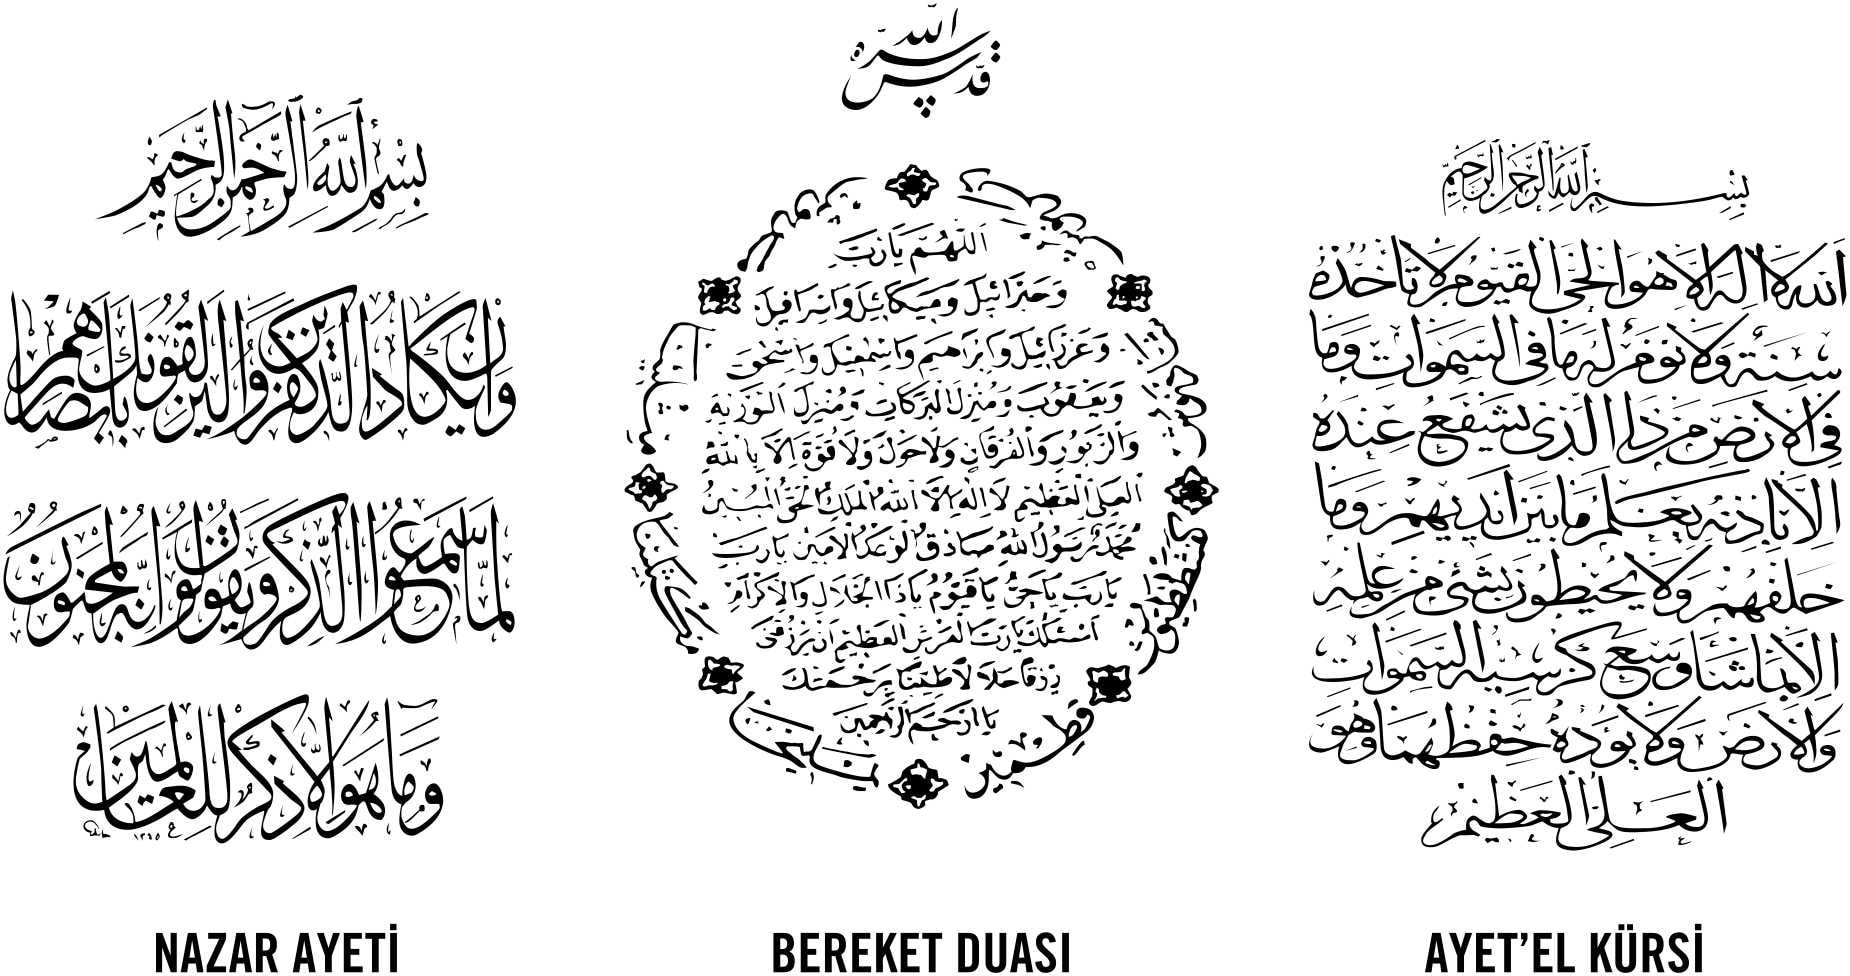 بِسْمِ اللّٰهِ الرَّحْمٰنِ الرَّحِيمِ
وَاِنْ يَكَادُ الَّذِينَ كَفَرُوا لَيُزْلِقُونَكَ بِاَبْصَارِهِمْ
لَمَّا سَمِعُوا الذِّكْرَ وَيَقُولُونَ اِنَّهُ لَمَجْنُونٌ
وَمَا هُوَ اِلَّا ذِكْرٌ لِلْعَالَمِينَ
١٣٤٥
NAZAR AYETİ
قدس الله سره
اَللّٰهُمَّ يَارَبَّ
وَجَبْرَائِيلَ وَمِيكَائِلَ وَاِسْرَافِيلَ
وَعَزْرَائِيلَ وَاِبْرَاهِيمَ وَاِسْمٰعِيلَ وَاِسْحٰقَ
وَيَعْقُوبَ وَمُنْزِلَ الْبَرَكَاتِ وَمُنْزِلَ التَّوْرٰيةِ
وَالزَّبُورِ وَالْفُرْقَانِ وَلَاحَوْلَ وَلَا قُوَّةَ اِلَّا بِاللّٰهِ
الْعَلِىِّ الْعَظِيمِ لَا اِلٰهَ اِلَّا اللّٰهُ الْمَلِكُ الْحَقُّ الْمُبِينُ
مُحَمَّدٌ رَسُولُ اللّٰهِ صَادِقُ الْوَعْدِ الْاَمِينِ يَارَبِّ
يَارَبِّ يَاحَىُّ يَاقَيُّومُ يَاذَا الْجَلَالِ وَالْاِكْرَامِ
اَسْئَلُكَ يَارَبَّ الْعَرْشِ الْعَظِيمِ اَنْ تَرْزُقَنِى
رِزْقًا حَلَالًا طَيِّبًا بِرَحْمَتِكَ
يَا اَرْحَمَ الرَّاحِمِينَ
BEREKET DUASI
بِسْمِ اللّٰهِ الرَّحْمٰنِ الرَّحِيمِ
اَللّٰهُ لَا اِلٰهَ اِلَّا هُوَ الْحَىُّ الْقَيُّومُ لَا تَاْخُذُهُ
سِنَةٌ وَلَا نَوْمٌ لَهُ مَا فِى السَّمٰوَاتِ وَمَا
فِى الْاَرْضِ مَنْ ذَا الَّذِى يَشْفَعُ عِنْدَهُ
اِلَّا بِاِذْنِهِ يَعْلَمُ مَا بَيْنَ اَيْدِيهِمْ وَمَا
خَلْفَهُمْ وَلَا يُحِيطُونَ بِشَىْءٍ مِنْ عِلْمِهِ
اِلَّا بِمَا شَاءَ وَسِعَ كُرْسِيُّهُ السَّمٰوَاتِ
وَالْاَرْضَ وَلَا يَؤُدُهُ حِفْظُهُمَا وَهُوَ
الْعَلِىُّ الْعَظِيمُ
AYET’EL KÜRSİ